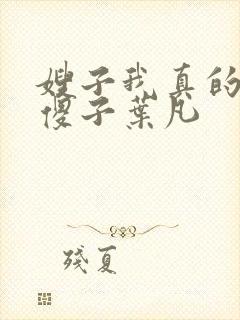 嫂子我真的
傻子葉凡
殘夏